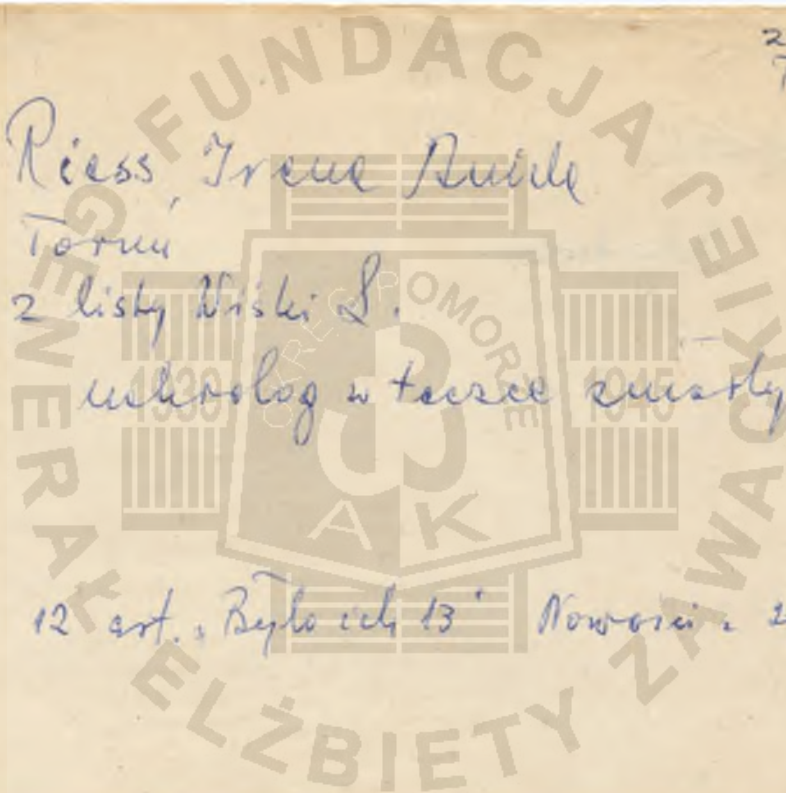 2
Riess, Irena Aniela
Toruń
z listy Wiśki S.
nekrolog w teczce zmarły
12 art. "Było ich 13" Nowości. 2
FUNDACJA GENERAŁ ELŻBIETY ZAWACKIEJ
OKRĘG POMORZE
1939 1945
AK